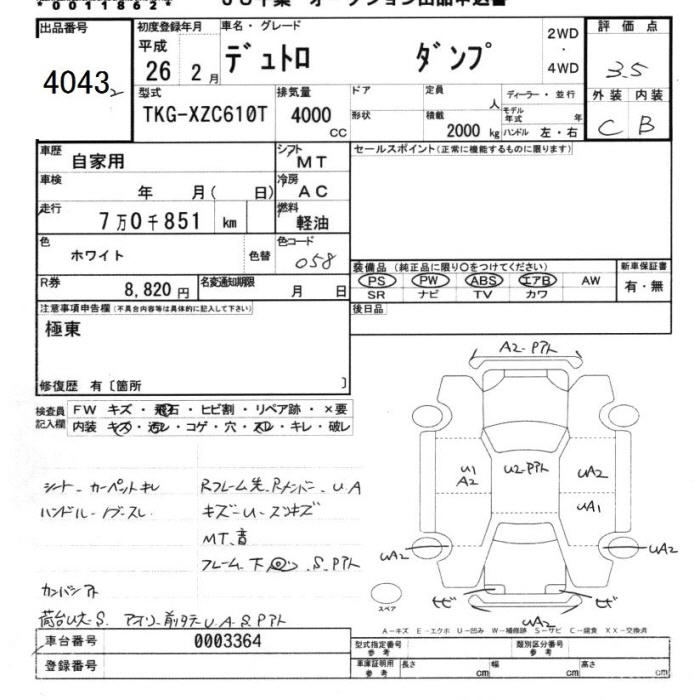 *0011862*
出品番号
4043
初度登録年月
平成
26 2月
車名・グレード
デュトロ ダンプ
2WD
・
4WD
評価点
3.5
型式
TKG-XZC610T
排気量
4000
CC
ドア
形状
定員
人
積載
2000 kg
ディーラー・並行
モデル年式 年
ハンドル 左・右
外装 内装
C B
車歴
自家用
シフト
MT
セールスポイント(正常に機能するものに限ります)
車検
年 月( 日)
冷房
AC
走行
7万0千851 km
燃料
軽油
色
ホワイト
色替
色コード
058
R券
8,820円
名変通知期限
月 日
装備品 (純正品に限り○をつけてください)
PS PW ABS エアB AW
SR ナビ TV カワ
新車保証書
有・無
注意事項申告欄(不具合内容等は具体的に記入して下さい)
極東
後日品
修復歴 有〔箇所 〕
検査員記入欄
FW キズ・飛石・ヒビ割・リペア跡・×要
内装 キズ・汚レ・コゲ・穴・スレ・キレ・破レ
シート・カーペットキレ
ハンドル・ノブ-スレ
Rフレーム先.Rメンバー.U.A
キズ-U-スリキズ
MT.音
フレーム.下 .S.Pアト
カンバンアト
荷台U大-S.
A2-Pアト
U1
A2
U2-Pアト
UA2
UA1
UA2
UA2
ヒビ
ヒビ
UA2
スペア
A-キズ E-エクボ U-凹み W-補修跡 S-サビ C-腐食 XX-交換済
車台番号
0003364
登録番号
型式指定番号
参考
類別区分番号
参考
車庫証明用
参考
長さ cm
幅 cm
高さ cm